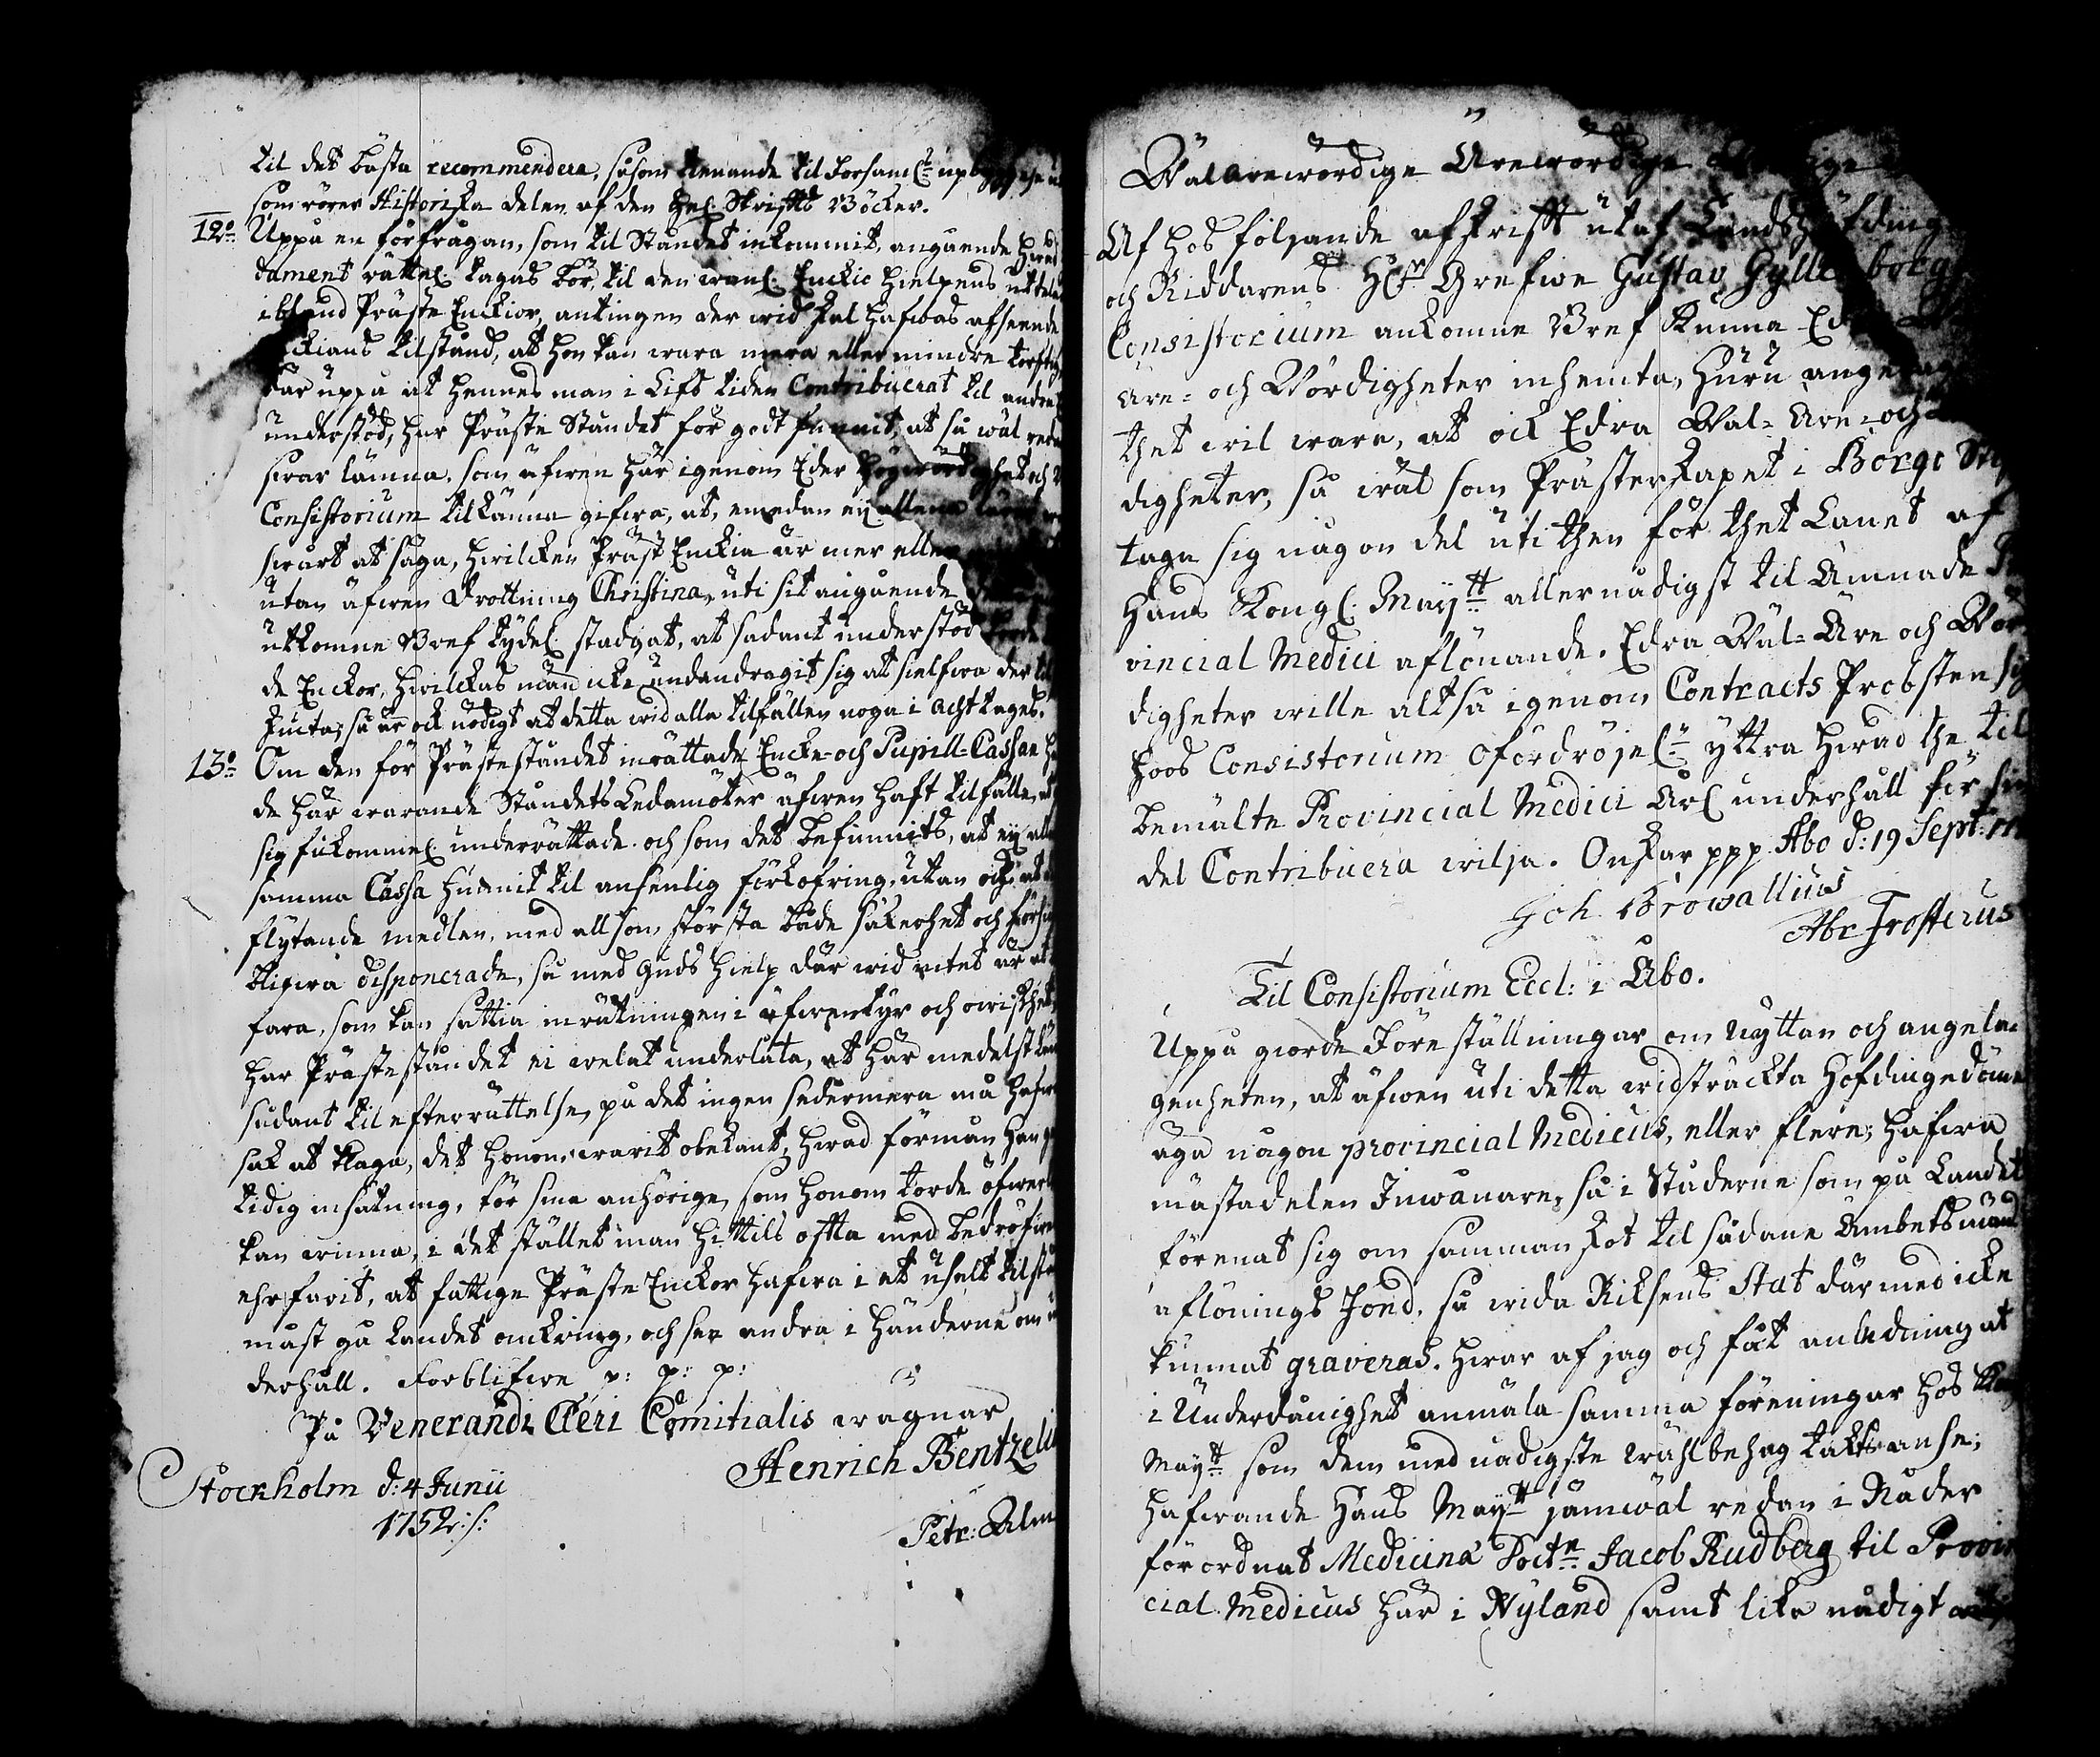 til det bästa recommendera, såsom tienande til Församl:
som rörer Historiska delen af den Hel. Skrifts Böcker.
12o: Uppå en förfrågan, som til Ståndet inkommit, angående hwad
dament rättel. tagas bör, til den wanl. Enckie hielpens
ibland Präste Enckior, antingen der wid skal hafwas afseende
tilstånd, at hon kan wara mera eller mindre torftig
där uppå at hennes man i Lifs tiden Contribuerat til andra
understöd, har Präste Ståndet för godt funnit, at så wäl
swar lämna, som äfwen här igenom Eder Högwördighet och
Consistorium tilkänna gifwa, at, emedan ej allena
swårt at säga, hwilcken Präst Enckia är mer eller
utan äfwen Drottning Christina, uti sit angående
utkomne Bref tydel. stadgat, at sådant understöd
de Enckor, hwilckas män icke undandragit sig at sielfwa der til
skuta; så är ock nödigt at detta wid alla tilfällen noga i acht tages.
13o: Om den för Prästeståndet inrättade Encke- och Pupill-Cassan
de här warande Ståndets Ledamöter äfwen haft tilfälle,
sig fulkommel. underrättade. och som det befinnits, at ej
samma Cassa hunnit til ansenlig förkofring, utan ock, at
flytande medlen, med all som största både säkerhet och
blifwa disponerade, så med Guds hielp där wid intet är
fara, som kan sättia inrätningen i äfwentyr och owisshet
har Prästeståndet ei welat underlåta, at här medelst
sådant til efterrättelse, på det ingen sedermera må hafwa
sak at klaga, det honom warit obekant, hwad förmån han
tidig insätning, för sina anhörige, som honom torde öfwer
kan winna, i det stället man hittils ofta med bedröfwe
ehrfarit, at fattige Präste Enckor hafwa i et uselt
måst gå landet omkring, och se andra i händerne om
derhåll. Förblifwe p: p: p:
På Venerandi Cleri Comitialis wägnar
Stockholm d: 4 Junii
1752.
Henrich Bentzeli
Petr: Alm
Wälärewördige Ärewördige
Af hos följande afskrift utaf Landshöfding
och Riddarens Hr Grefwe Gustav Gyllenborgs
Consistorium ankomne Bref kunna
Äre- och Wördigheter inhemta, huru
thet wil wara, at ock Edra Wäl-Äre- och
digheter, så wäl som Prästerskapet i Borgo
taga sig någon del uti then för thet Länet af
Hans Kongl. Maijtt allernådigst til ämnade
vincial Medici aflönande. Edra Wäl-Äre och
digheter wille altså igenom Contracts Probsten
hoos Consistorium ofördröjel. yttra hwad the til
bemälte Provincial Medici Årl. underhåll för sin
del Contribuera wilja. Önskar ppp Åbo d: 19 Sept:
Joh. Browallius
Abr Frosterus
Til Consistorium Eccl: i Åbo.
Uppå giorde Föreställningar om nyttan och angelä-
genheten, at äfwen uti detta widsträckta Höfdingedöme
äga någon provincial Medicus, eller flere, hafwa
mästadelen Inwånare, så i Städerne som på Landet
förenat sig om sammanskot til sådane Ämbetsmäns
aflönings Fond, så wida Riksens Stat därmed icke
kunnat graveras. Hwar af jag och fåt anledning at
i Underdånighet anmäla samma föreningar hos
Maijtt som dem med nådigste wählbehag täckts anse;
hafwande Hans Maijtt jämwäl redan i Nåder
förordnat Medicinæ Doctn Jacob Rudberg til Provin
cial Medicus här i Nyland samt lika nådigt